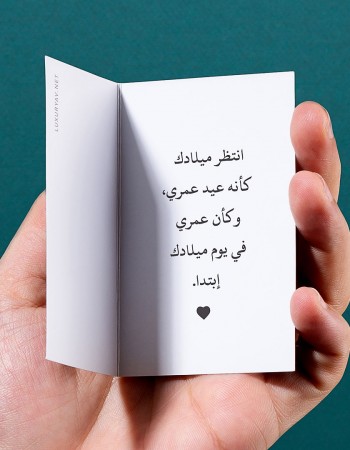 انتظر ميلادك
كأنه عيد عمري،
وكأن عمري
في يوم ميلادك
إبتدا.